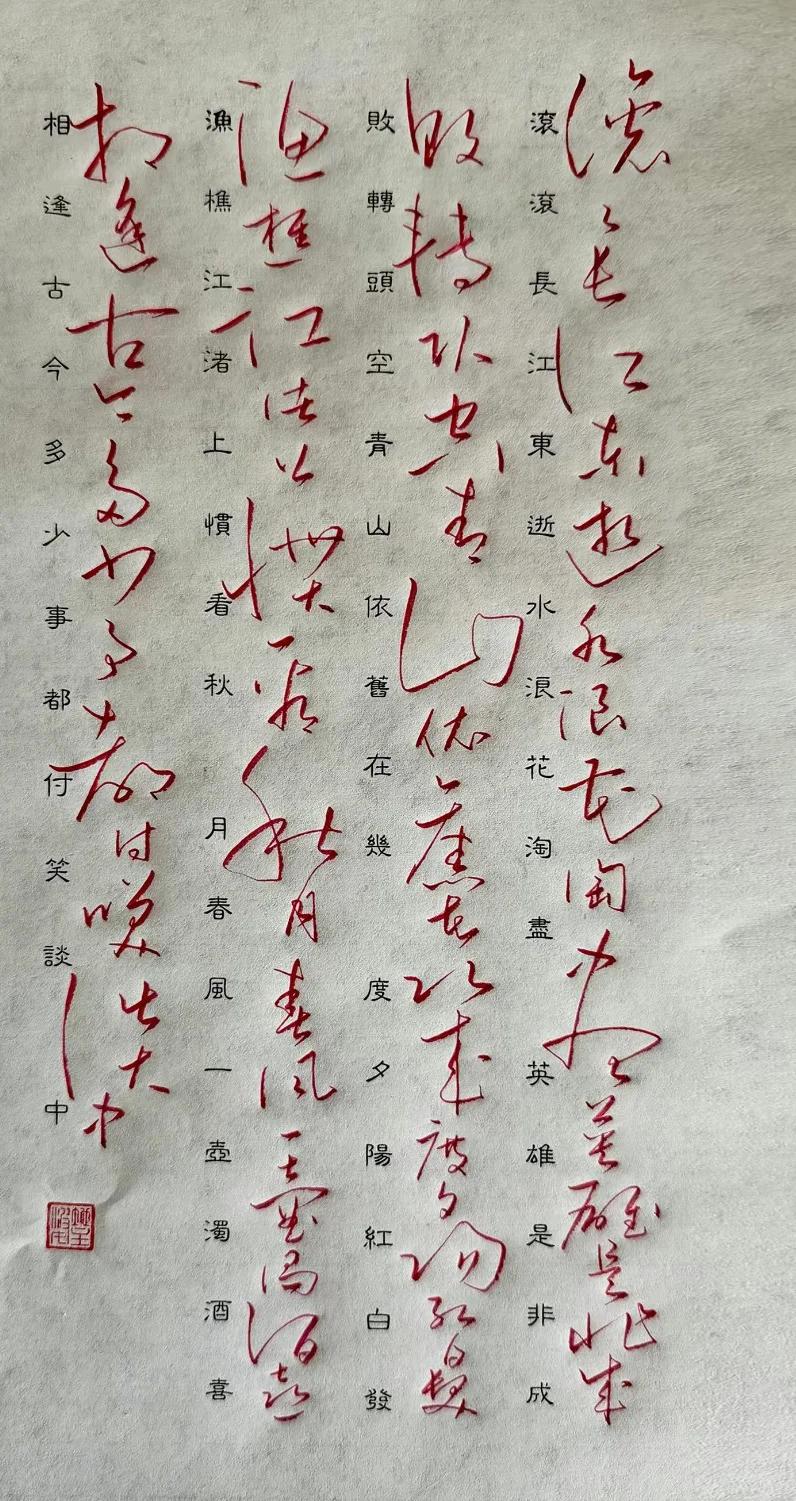 滾〻長江東逝水浪花淘盡英雄是非成
滾滾長江東逝水浪花淘盡英雄是非成
敗轉頭空青山依舊在幾度夕陽紅白髮
敗轉頭空青山依舊在幾度夕陽紅白發
漁樵江渚上慣看秋月春風一壺濁酒喜
漁樵江渚上慣看秋月春風一壺濁酒喜
相逢古今多少事都付笑談中
相逢古今多少事都付笑談中